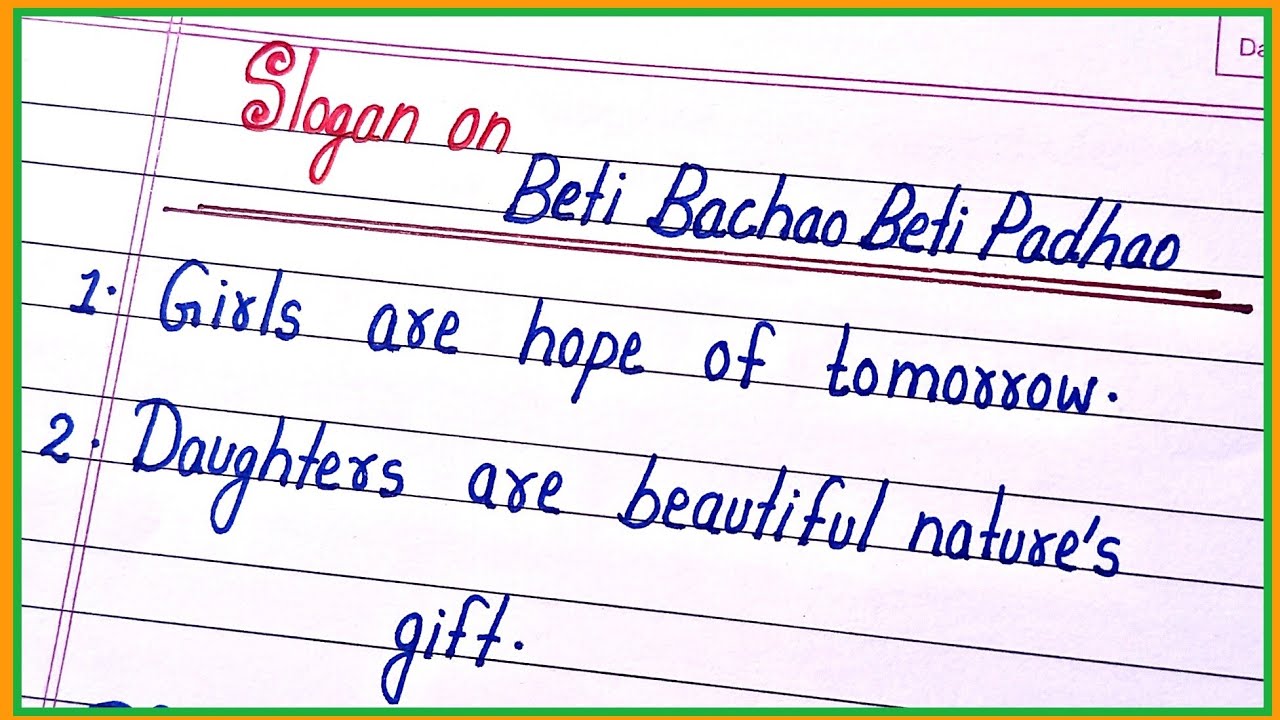 Da
Slogan on
Beti Bachao Beti Padhao
1. Girls are hope of tomorrow.
2. Daughters are beautiful nature's
gift.